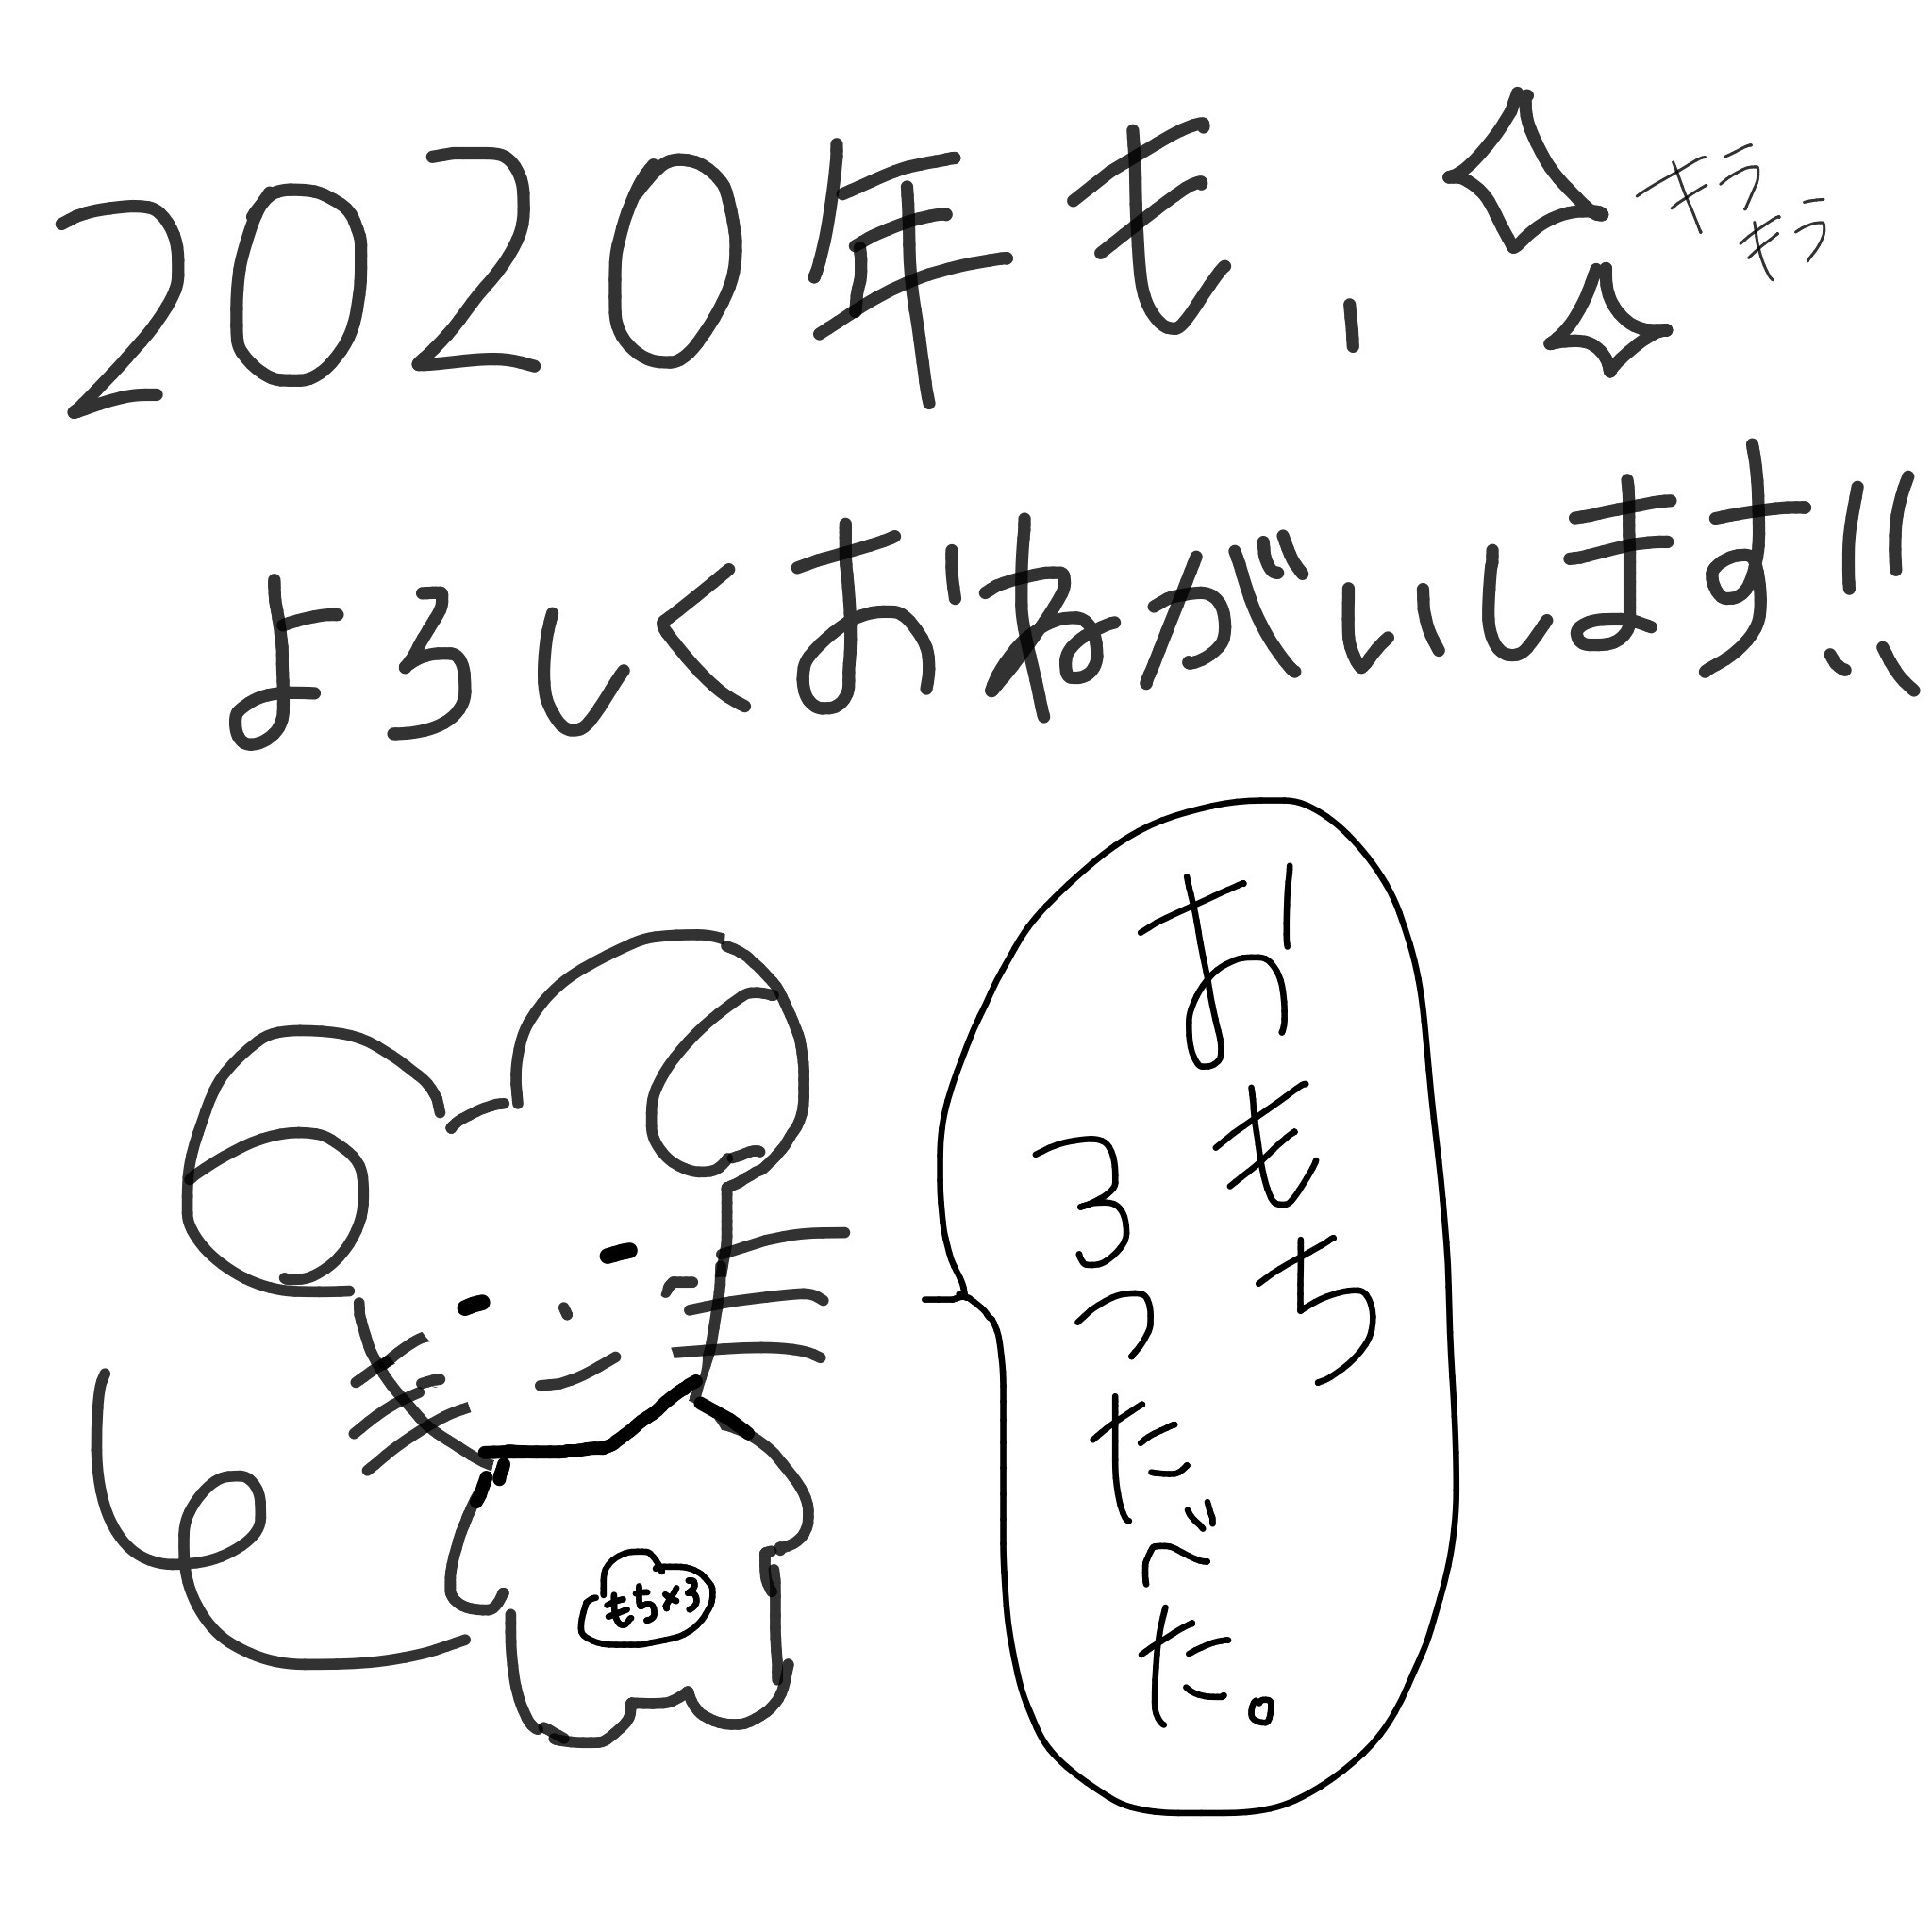 2020年も、
キラ
キラ
よろしくおねがいします!!
おもち
3つたべた。
もち×3